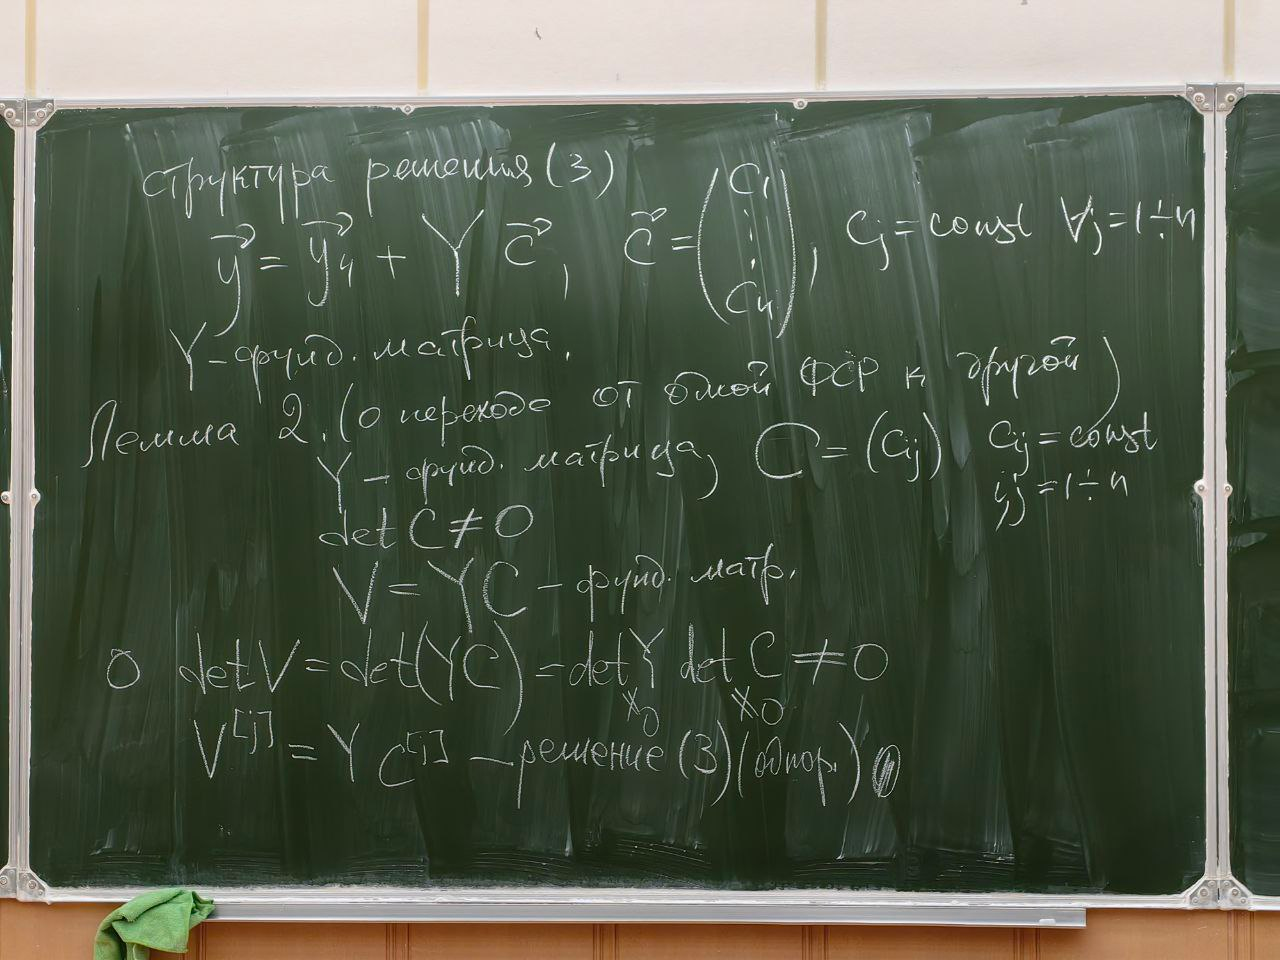 структура решения (3)
y⃗ = y⃗ч + Y c⃗, c⃗ = (C₁ ⋮ Cₙ), Cj = const ∀j = 1÷n
Y – фунд. матрица.
Лемма 2. (о переходе от одной ФСР к другой)
Y – фунд. матрица, C = (Cij) Cij = const
i,j = 1÷n
det C ≠ 0
V = YC – фунд. матр.
O det V = det(YC) = det Y det C ≠ 0
⁂0 ⁂0
V^[j] = Y C^[j] – решение (3) (однор.)